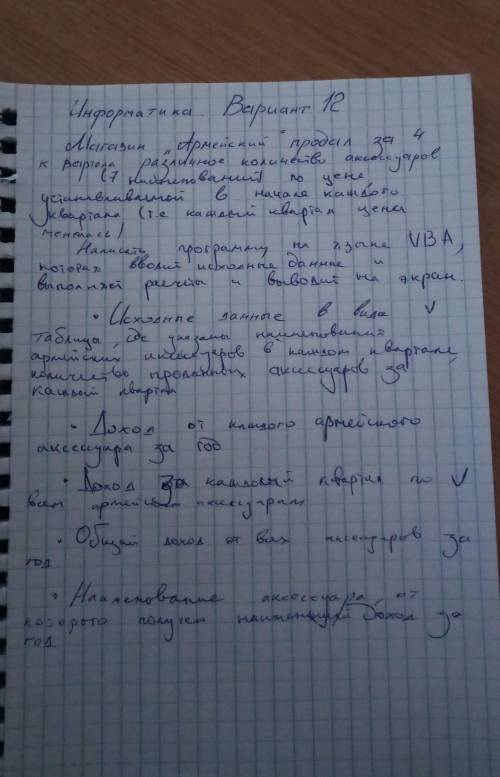 Информатика. Вариант 12
Магазин "Армейский" продал за 4
квартала различное количество аксессуаров
(7 наименований) по цене,
устанавливаемой в начале каждого
квартала (т.е каждый квартал цены
менялись)
Написать программу на языке VBA,
которая вводит исходные данные и
выполняет расчеты и выводит на экран.
• Исходные данные в виде V
таблицы, где указаны наименования
армейских аксессуаров в каждом квартале,
количество проданных аксессуаров за
каждый квартал
• Доход от каждого армейского
аксессуара за год
• Доход за каждый квартал по V
всем армейским аксессуарам
• Общий доход от всех аксессуаров за
год
• Наименование аксессуара, от
которого получен наименьший доход за
год